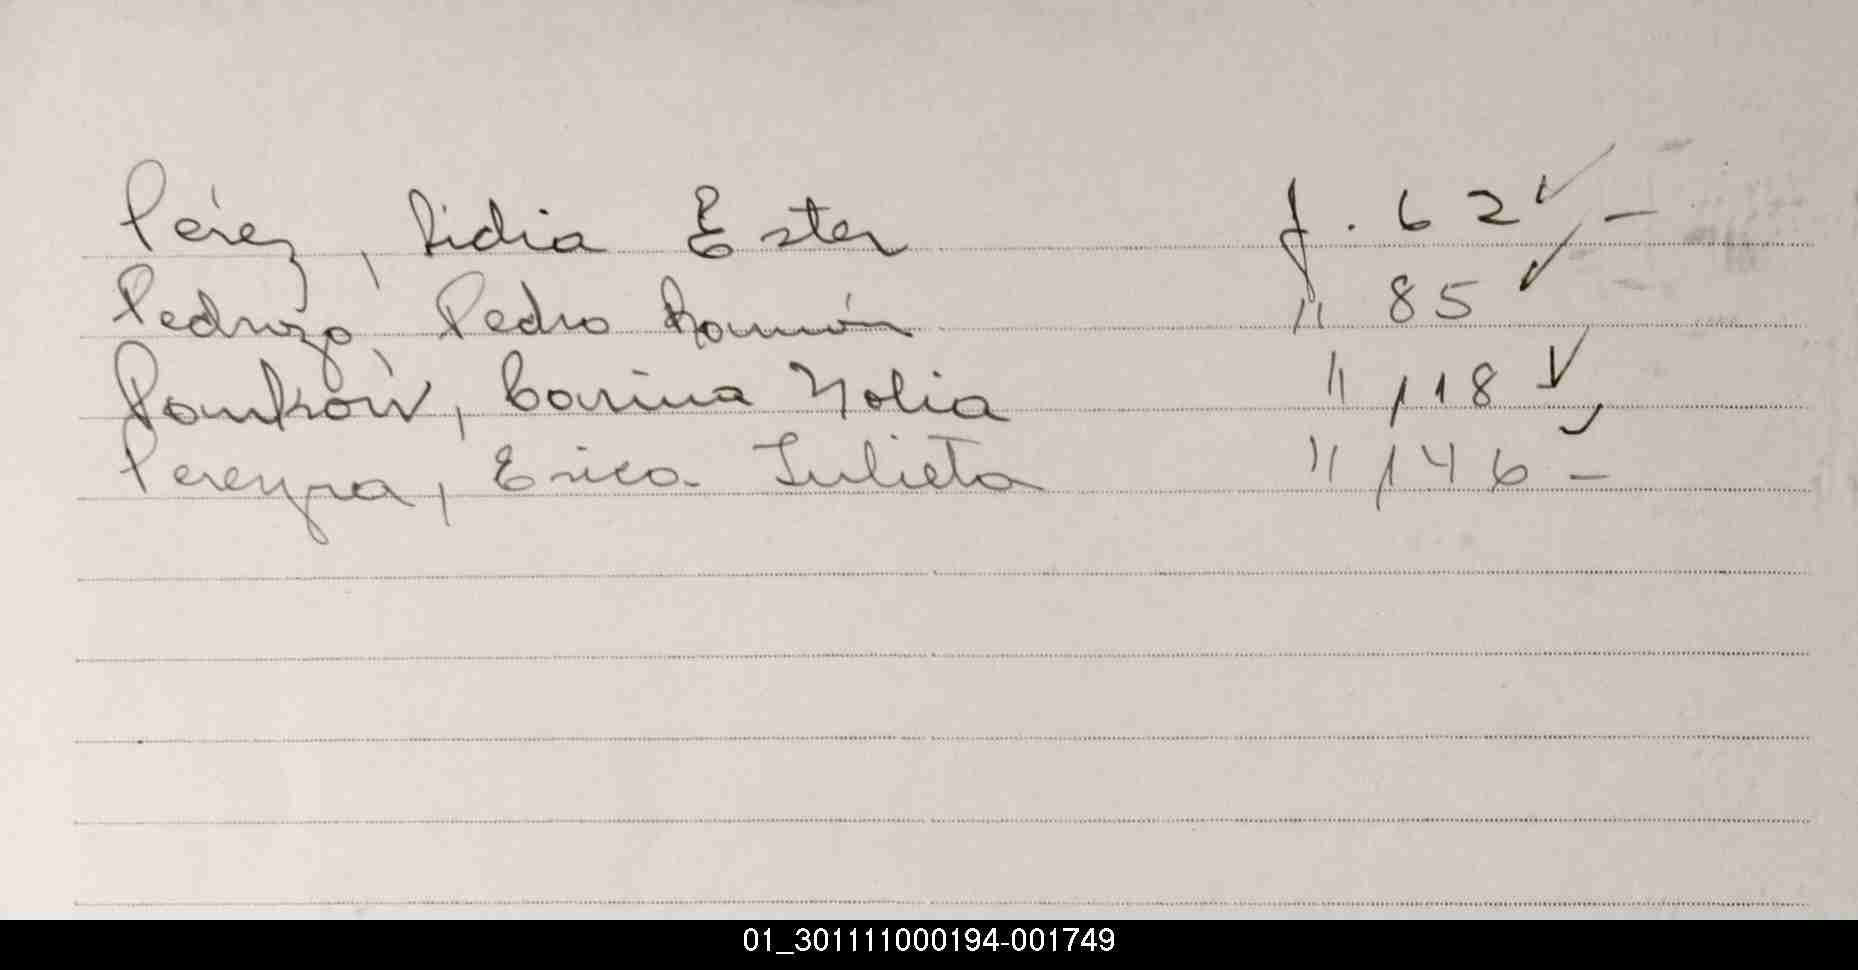 Pérez, Lidia Ester f. 62 ✓ –
Pedrozo, Pedro Ramón " 85 ✓
Carina Nolia " 118 ✓
Pereyra, Erica Julieta " 146 ✓ –
01_301111000194-001749